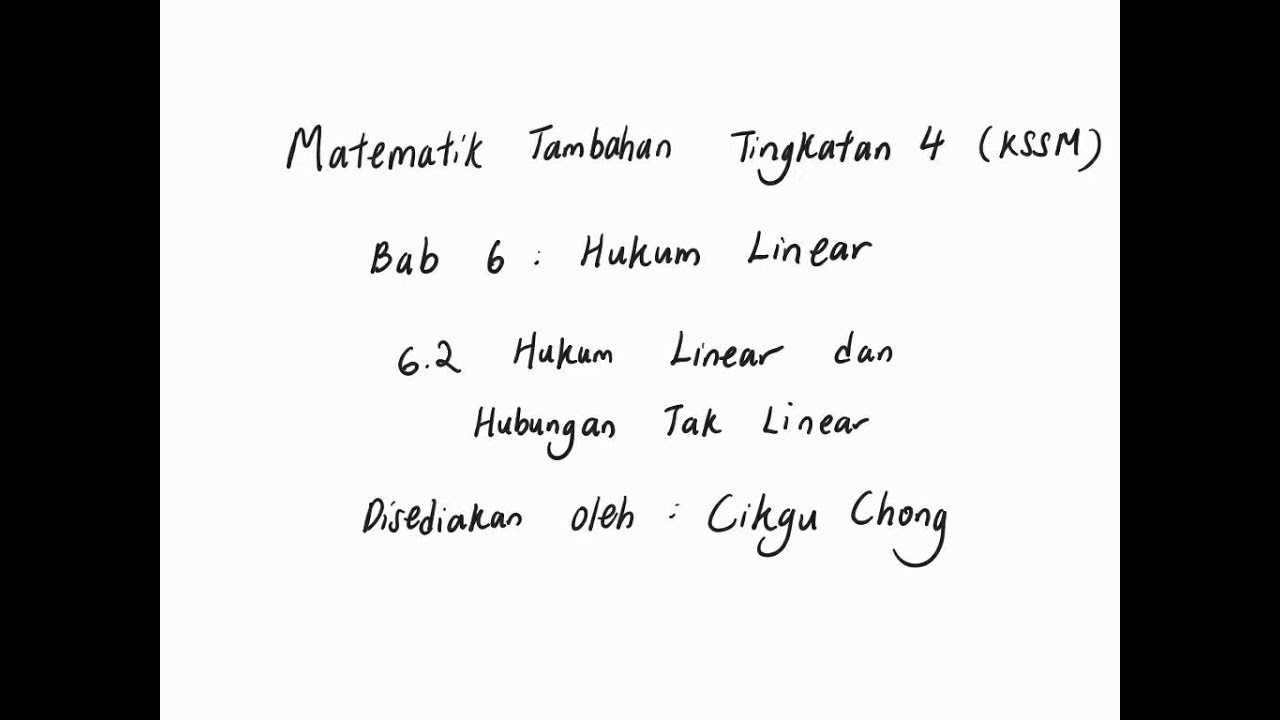 Matematik Tambahan Tingkatan 4 (KSSM)
Bab 6 : Hukum Linear
6.2 Hukum Linear dan
Hubungan Tak Linear
Disediakan oleh : Cikgu Chong